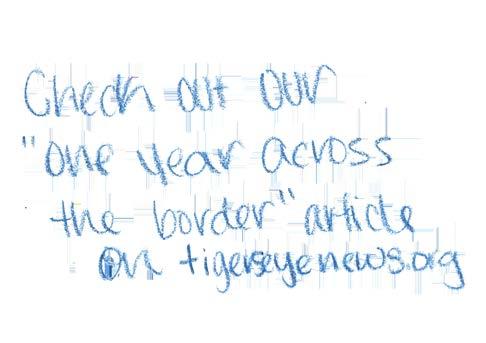 Check out our
"one year across
the border" article
on tigerseyenews.org